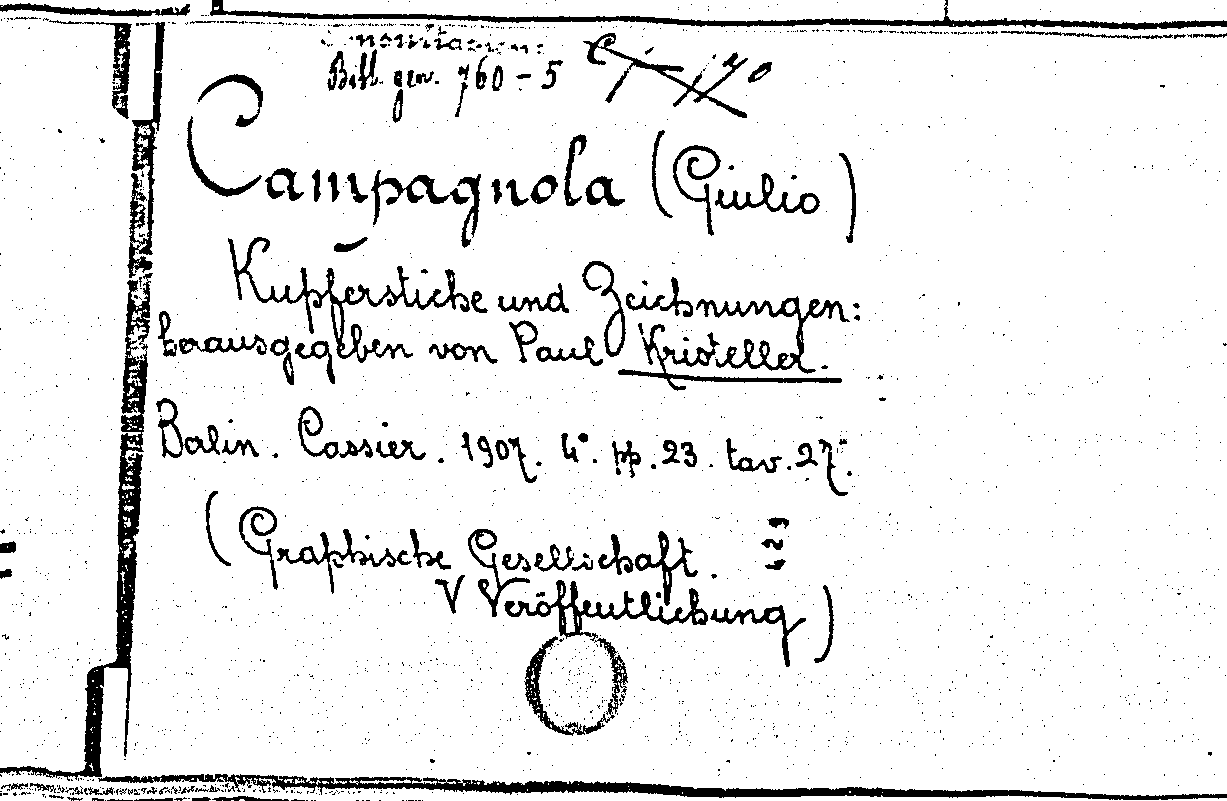 Bibl. gen. 760-5
Campagnola (Giulio)
Kupferstiche und Zeichnungen:
herausgegeben von Paul Kristeller.
Berlin. Cassier. 1907. 4°. pp. 23. tav. 27.
(Graphische Gesellschaft.
V Veröffentlichung)